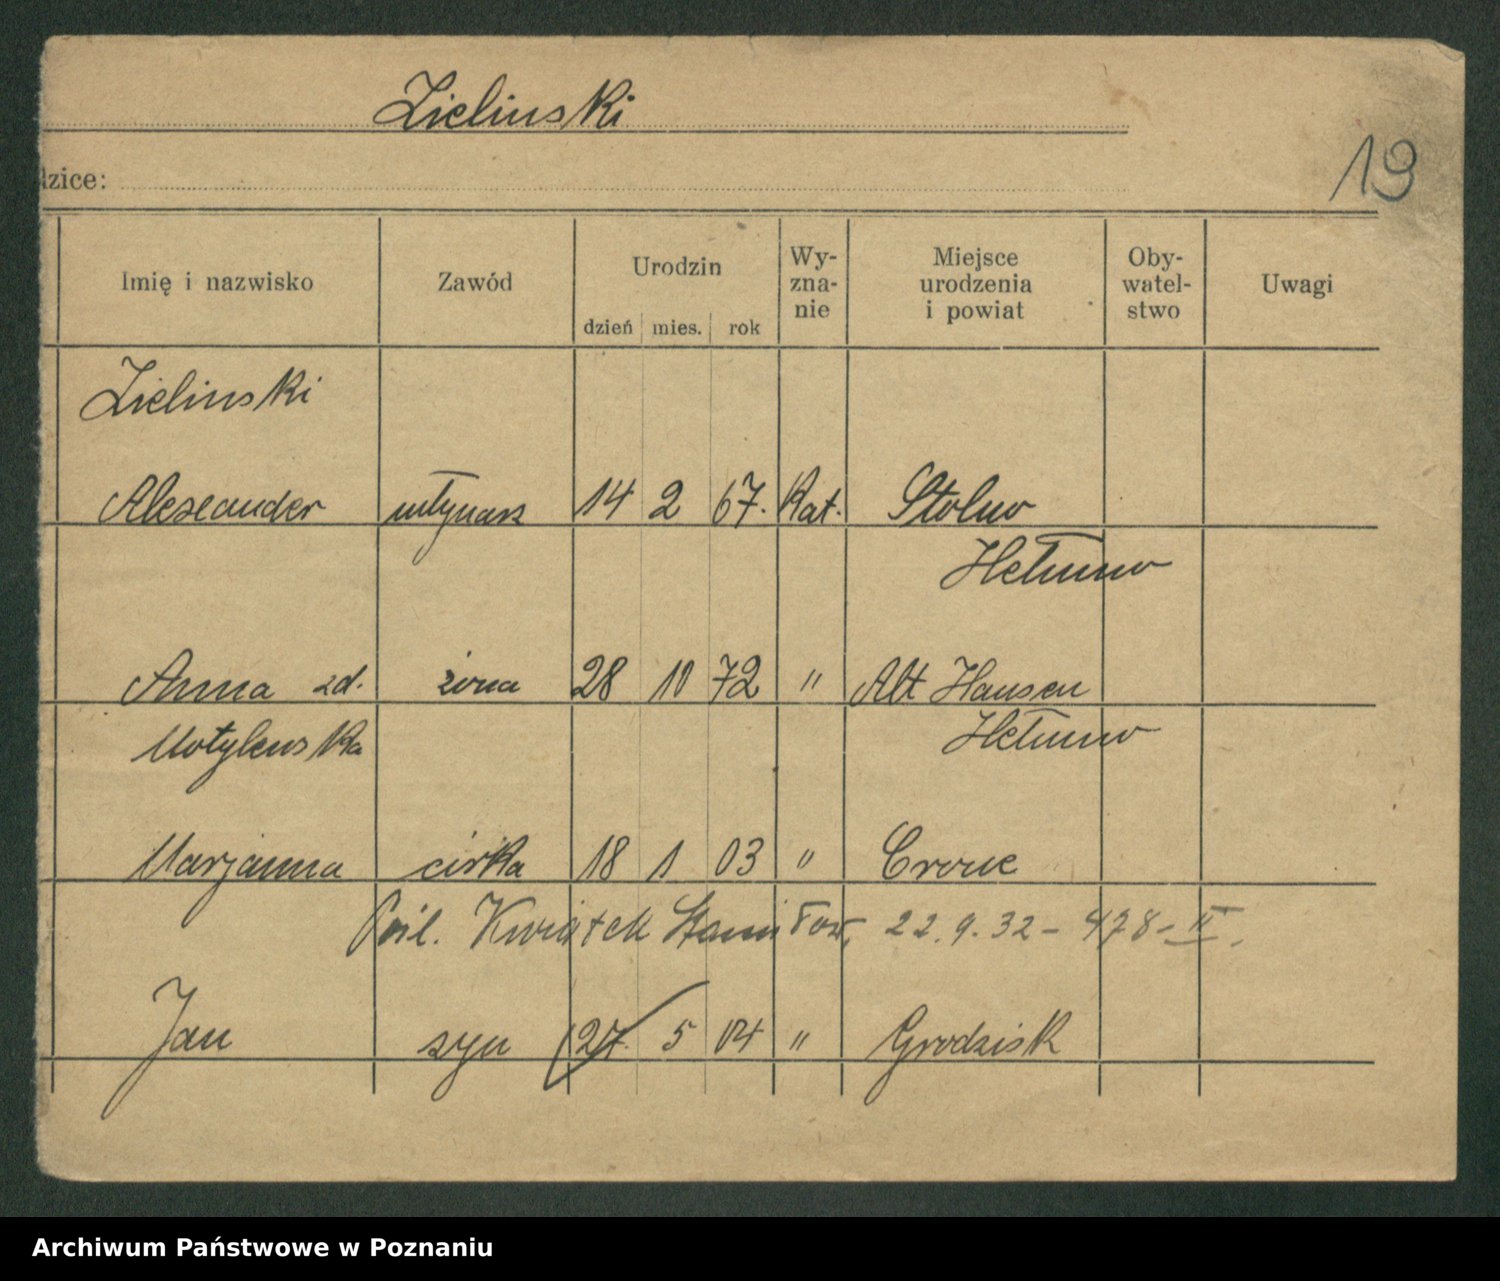 Zielinski
19
dzice:
Imię i nazwisko Zawód Urodzin dzień mies. rok Wy-zna-nie Miejsce urodzenia i powiat Oby-watel-stwo Uwagi
Zielinski
Alexander młynarz 14 2 67. Kat. Stolno
Hełmno
Anna zd. żona 28 10 72 " Alt Hausen
Motylewska Hełmno
Marjanna córka 18 1 03 " Crone
Kwiatek Stanisław, 22.9.32 – 478 – II.
Jan syn 27. 5 04 " Grodzisk
Archiwum Państwowe w Poznaniu